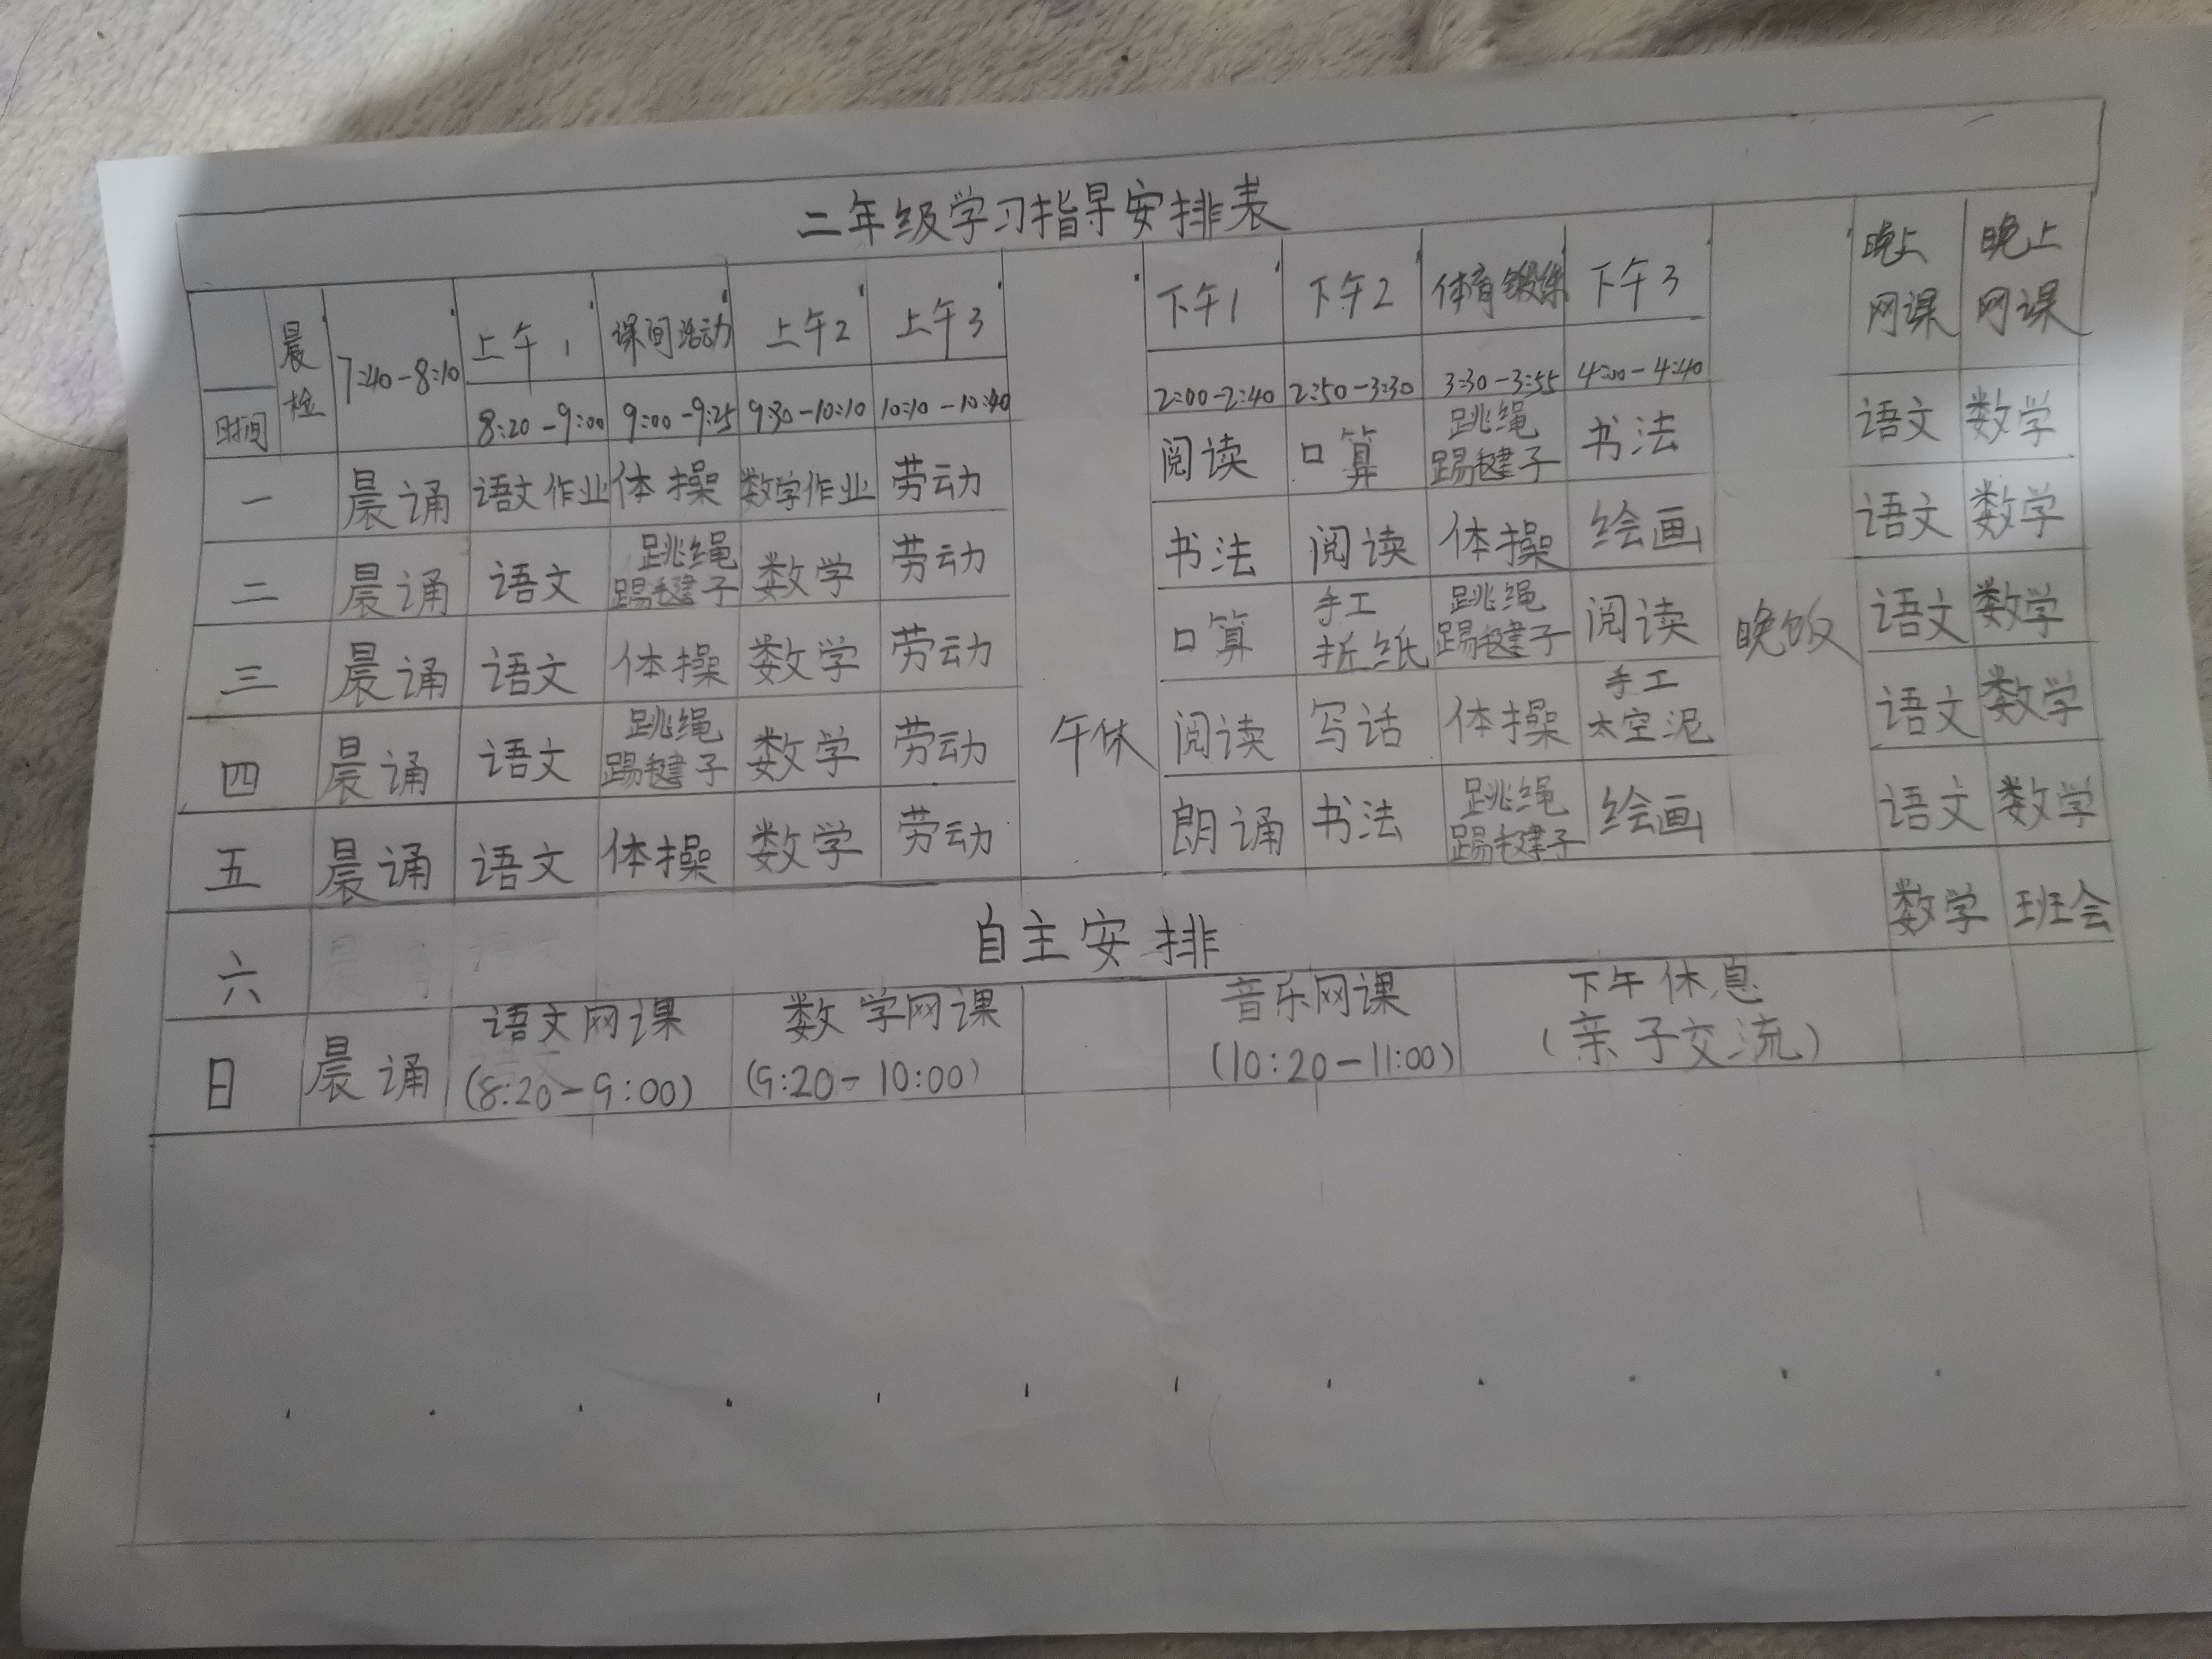 二年级学习指导安排表
时间 晨检 7:40-8:10 上午1 课间活动 上午2 上午3 下午1 下午2 体育锻炼 下午3 晚上网课 晚上网课
8:20-9:00 9:00-9:25 9:30-10:10 10:10-10:40 2:00-2:40 2:50-3:30 3:30-3:55 4:00-4:40
一 晨诵 语文作业 体操 数学作业 劳动 阅读 口算 跳绳 踢毽子 书法 语文 数学
二 晨诵 语文 跳绳 踢毽子 数学 劳动 书法 阅读 体操 绘画 语文 数学
三 晨诵 语文 体操 数学 劳动 口算 手工 折纸 跳绳 踢毽子 阅读 晚饭 语文 数学
四 晨诵 语文 跳绳 踢毽子 数学 劳动 午休 阅读 写话 体操 手工 太空泥 语文 数学
五 晨诵 语文 体操 数学 劳动 朗诵 书法 跳绳 踢毽子 绘画 语文 数学
六 自主安排 数学 班会
日 晨诵 语文网课 (8:20-9:00) 数学网课 (9:20-10:00) 音乐网课 (10:20-11:00) 下午休息 (亲子交流)